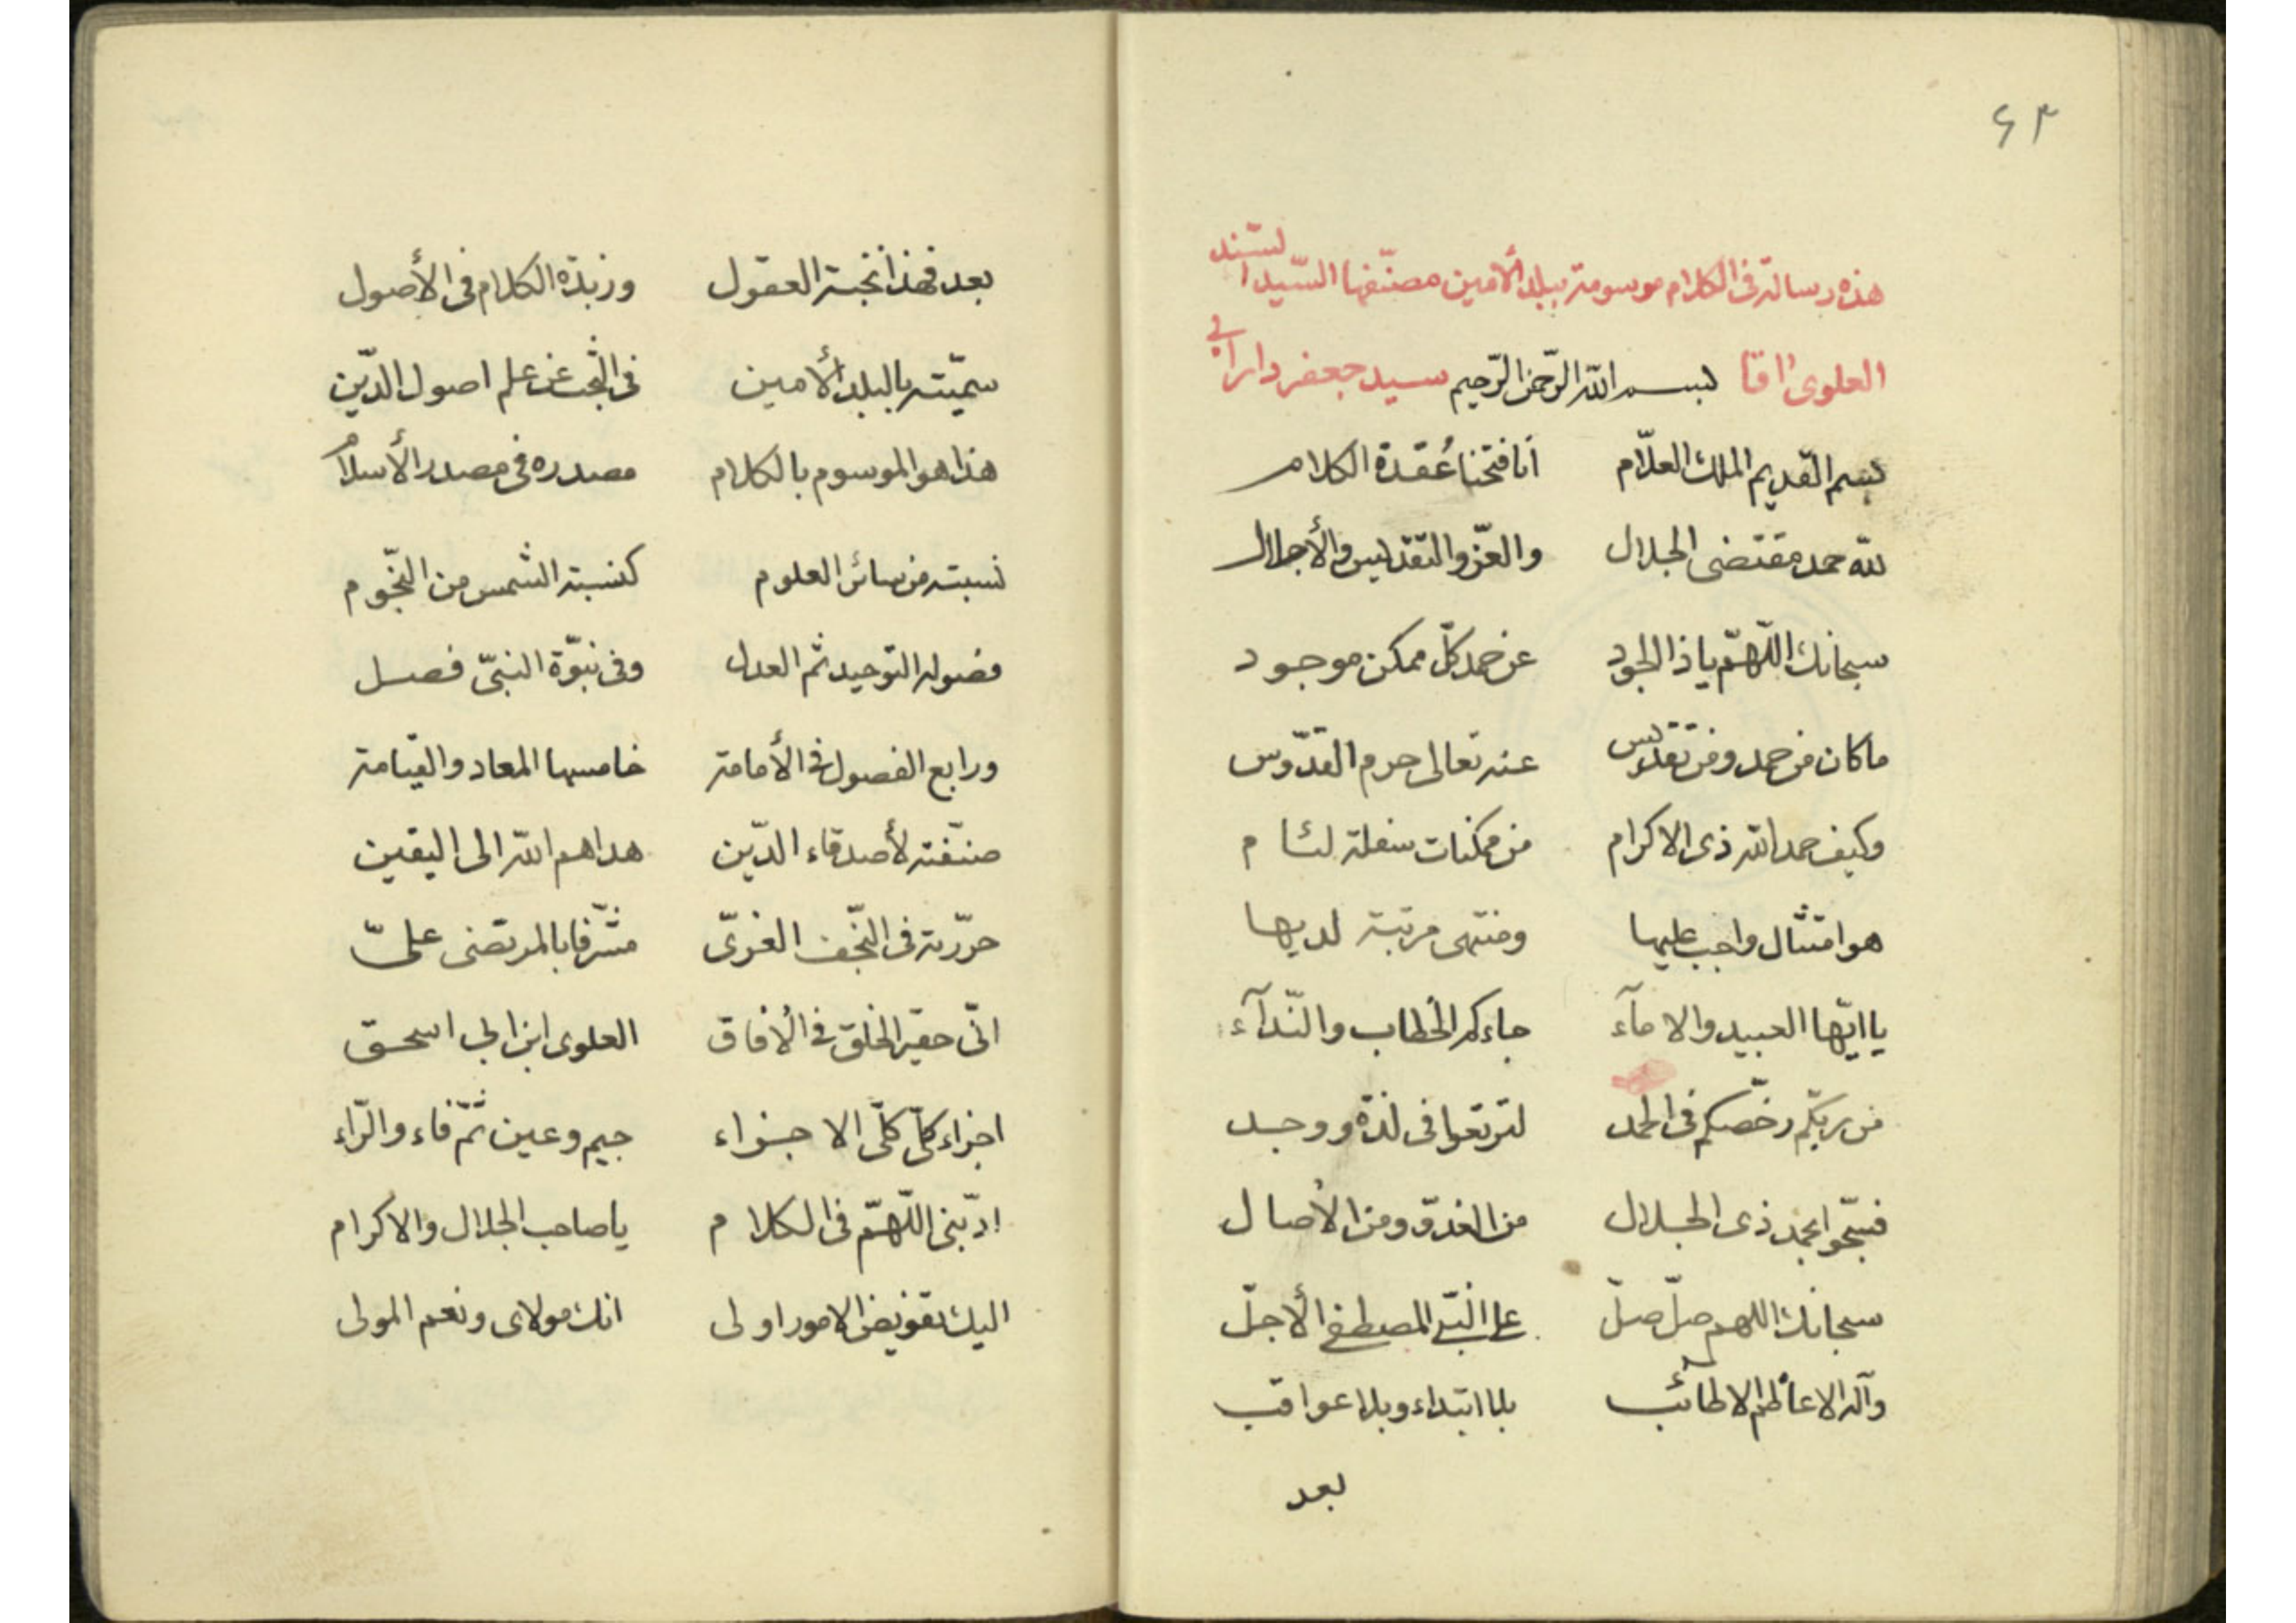 ۶۳
هذه رسالة فى الكلام موسومة ببلد الأمين مصنّفها السّيد السّند
العلوى اقا سيد جعفر دارابى
بسم الله الرّحمن الرّحيم
بسم القديم الملك العلّام انا فتحنا عُقدة الكلام
لله حمد مقتضى الجلال والعزّ والتقديس والأجلال
سبحانك اللّهمّ يا ذا الجود عن حمد كلّ ممكن موجود
ما كان من حمد ومن تقديس عنه تعالى حرم القدّوس
وكيف حمد الله ذى الاكرام من ممكنات سفلة لئام
هو امتثال واجب عليها ومنتهى مرتبة لديها
يا ايّها العبيد والامآء جاءكم الخطاب والنّدآء
من ربّكم رخّصكم فى الحمد لترتعوا فى لذّة ووجد
فسبّحوا بحمد ذى الجلال من الغدوّ ومن الأصال
سبحانك اللهم صلّ صلّ على النّبى المصطفى الأجلّ
وآله الاعاظم الاطائب بلا ابتداء وبلا عواقب
بعد
بعد فهذا نخبة العقول وزبدة الكلام فى الأصول
سميّته بالبلد الأمين فى البحث عن علم اصول الدّين
هذا هو الموسوم بالكلام مصدره فى مصدر الأسلام
نسبته من سائر العلوم كنسبة الشمس من النّجوم
فصوله التوحيد ثم العدل وفى نبوّة النبىّ فصل
ورابع الفصول فى الأمامة خامسها المعاد والقيامة
صنّفته لأصدقاء الدّين هداهم الله الى اليقين
حرّرته فى النّجف الغروىّ مشرّفا بالمرتضى علىّ
انّى حقير الخلق فى الأفاق العلوى ابن ابى اسحق
اجزاء كلّ كلّى الاجزاء جيم وعين ثمّ فاء والرّاء
ادّبنى اللّهمّ فى الكلام يا صاحب الجلال والاكرام
اليك تفويض الامور اولى انك مولاى ونعم المولى